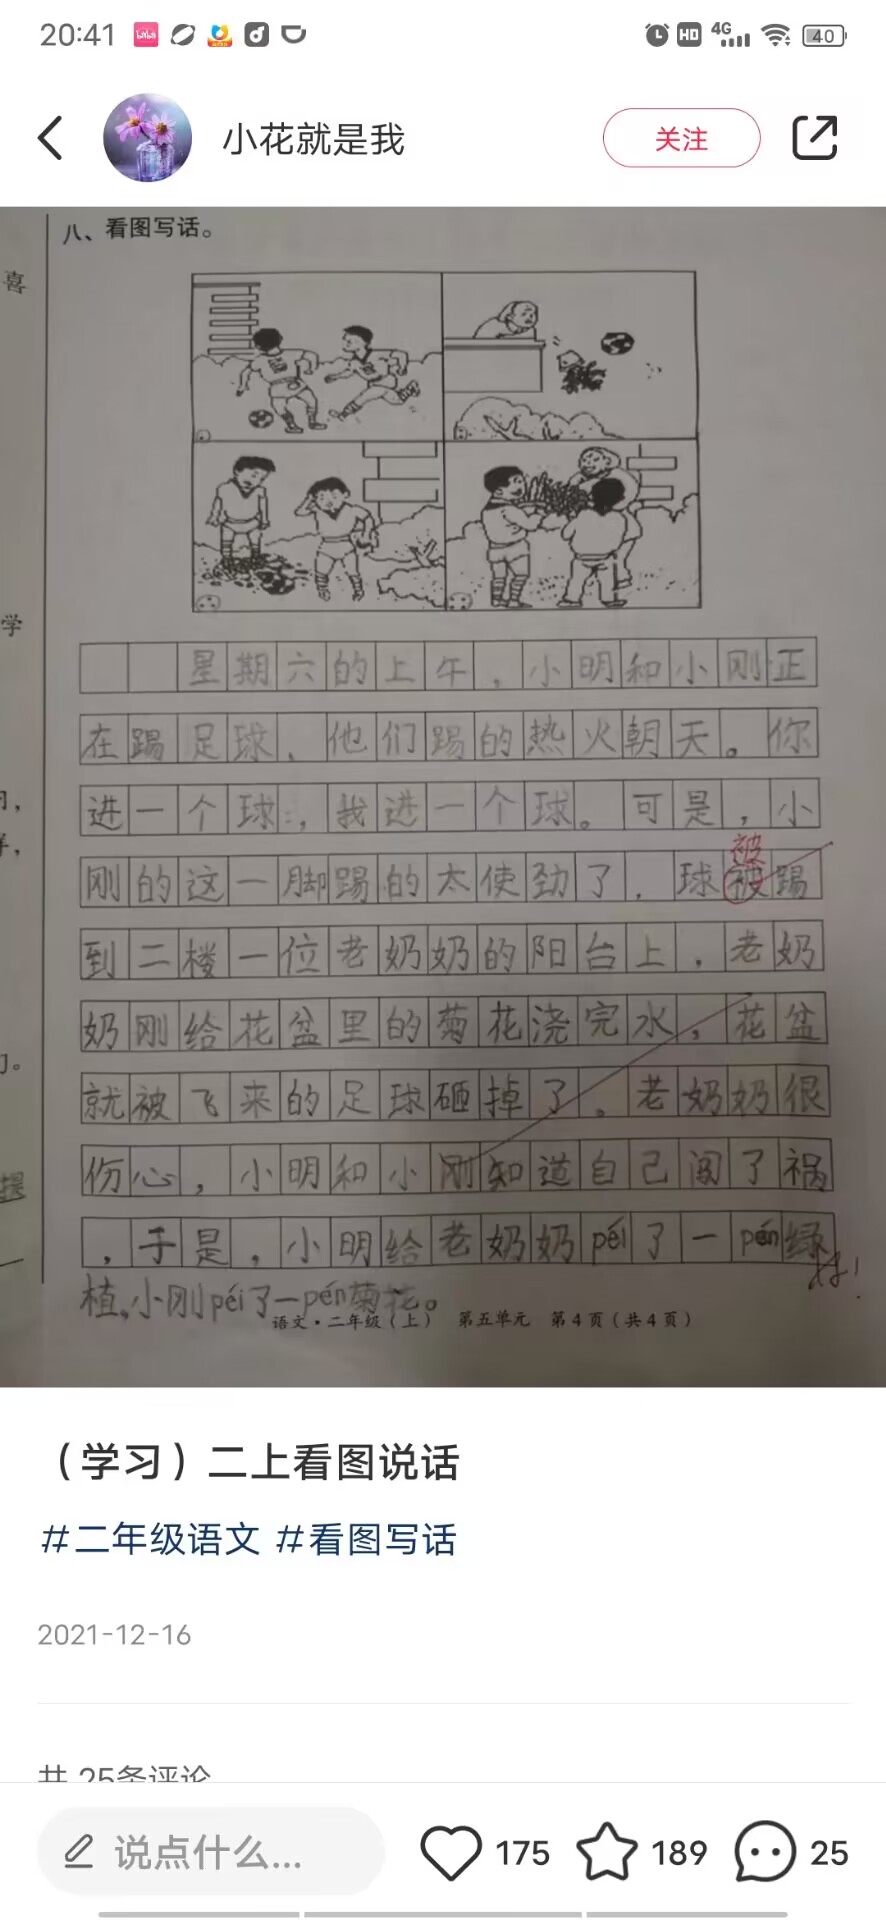 20:41
HD 4G 40
小花就是我
关注
八、看图写话。
喜
学
星期六的上午，小明和小刚正
在踢足球，他们踢的热火朝天。你
进一个球，我进一个球。可是，小
被
刚的这一脚踢的太使劲了，球被踢
到二楼一位老奶奶的阳台上，老奶
奶刚给花盆里的菊花浇完水，花盆
就被飞来的足球砸掉了。老奶奶很
伤心，小明和小刚知道自己闯了祸
，于是，小明给老奶奶péi了一pén绿
植，小刚péi了一pén菊花。
语文·二年级（上） 第五单元 第4页（共4页）
（学习）二上看图说话
#二年级语文 #看图写话
2021-12-16
共 25条评论
说点什么...
175
189
25